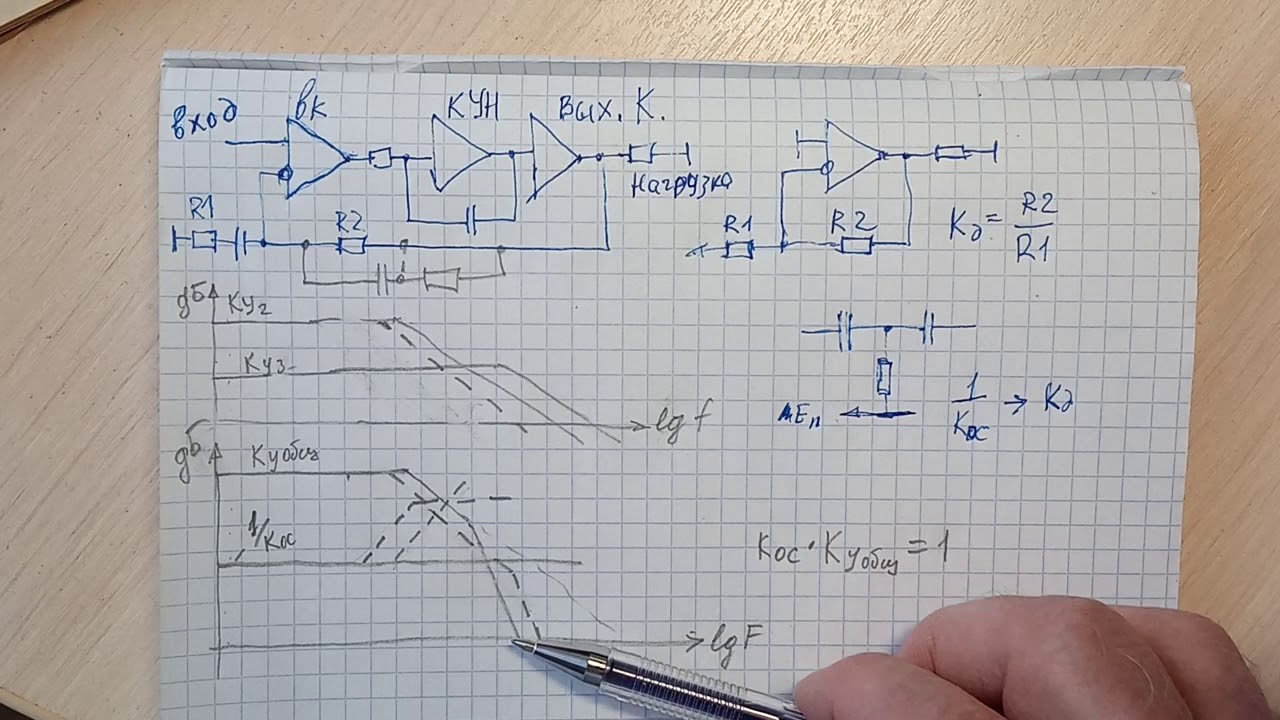 вход
ВК
КУН
ВЫХ. К.
Нагрузка
R1
R2
R1
R2
Kд = R2/R1
дБ
Ку2
Ку3
lg f
1/Кос → Кд
дБ
Ку общ
1/Кос
Кос · Ку общ = 1
lg F